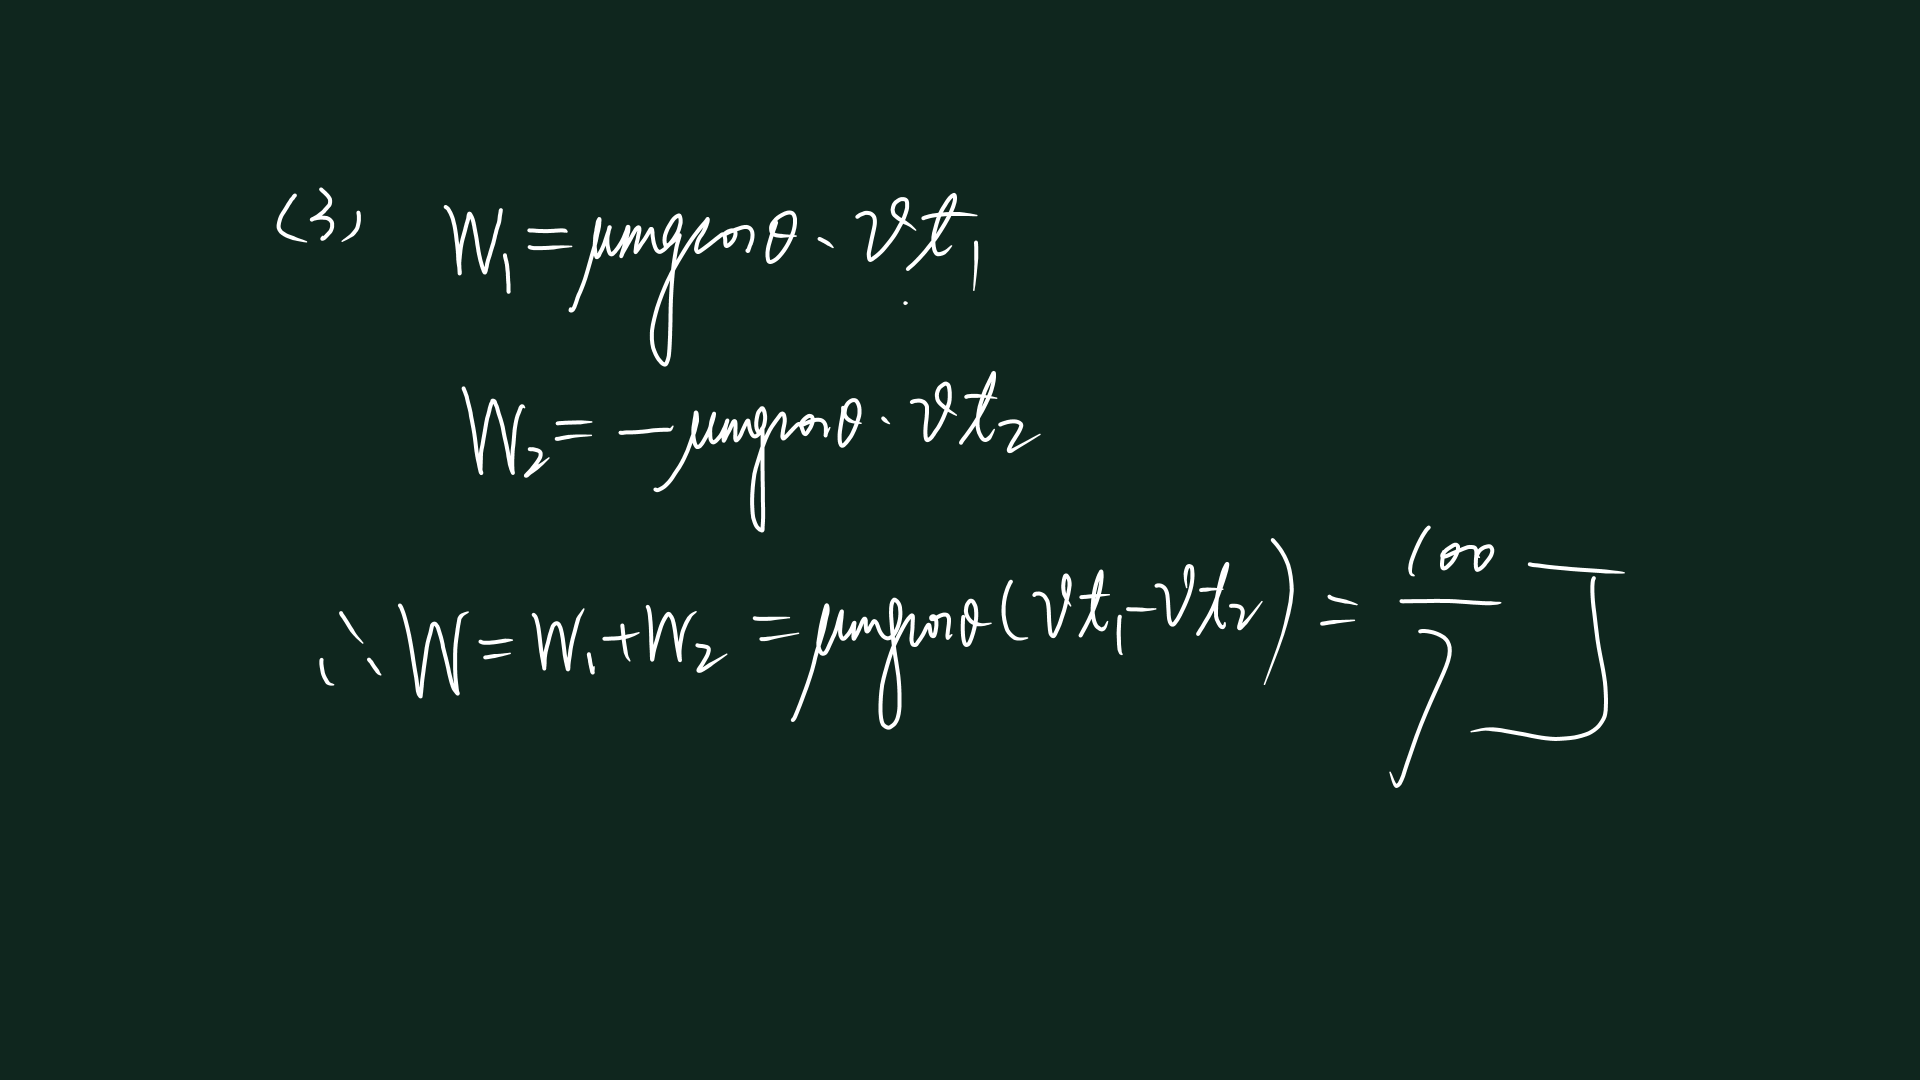 (3) W₁ = μmgcosθ · vt₁
W₂ = −μmgcosθ · vt₂
∴ W = W₁ + W₂ = μmgcosθ(vt₁ − vt₂) = 100/7 J